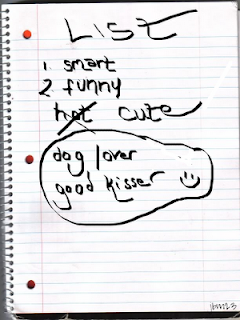 LIST
1. smart
2. funny
hot cute
dog lover
good kisser